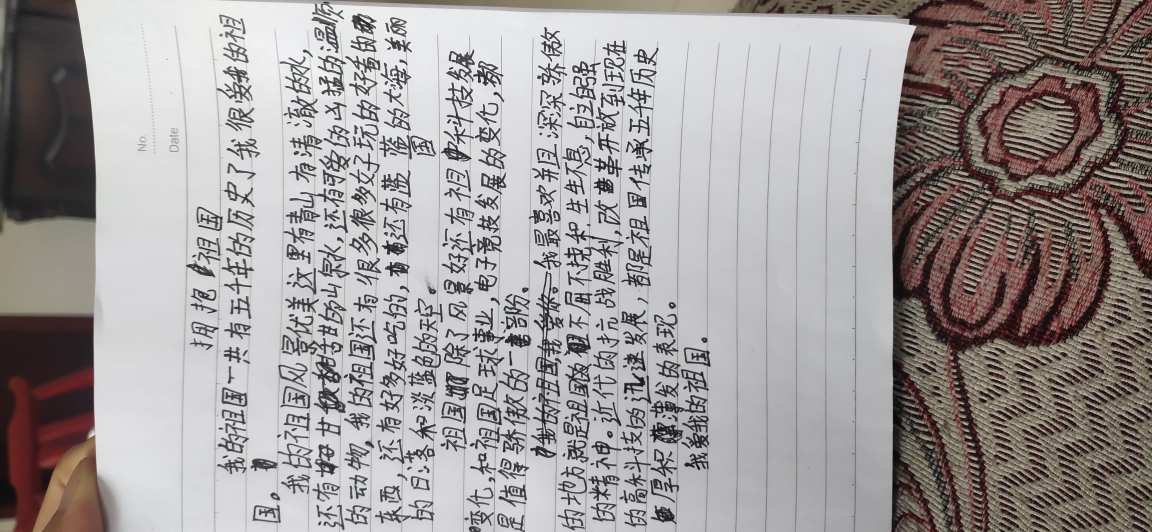 No.
Date
拥抱祖国
我的祖国一共有五千年的历史了我很爱我的祖
国。
我的祖国风景优美这里有青山有清澈的水,
还有甘甘的山泉水,还有可爱的山猛的温顺
的动物,我的祖国还有很多很多好玩的好看的
东西,还有好多好吃的,还有蓝蓝的大海,美丽
的日落和淡蓝色的天空。
祖国除了风景好还有祖国科技发展
变化,和祖国足球事业,电子竞技发展的变化,都
是值得骄傲的一部份。
我最喜欢并且深深骄傲
的地方就是祖国不屈不挠和生生不息,自立自强
的精神。近代的于抗战胜利,改革开放到现在
的高科技的迅速发展,都是祖国传承五千年历史
厚积薄发的表现。
我爱我的祖国。